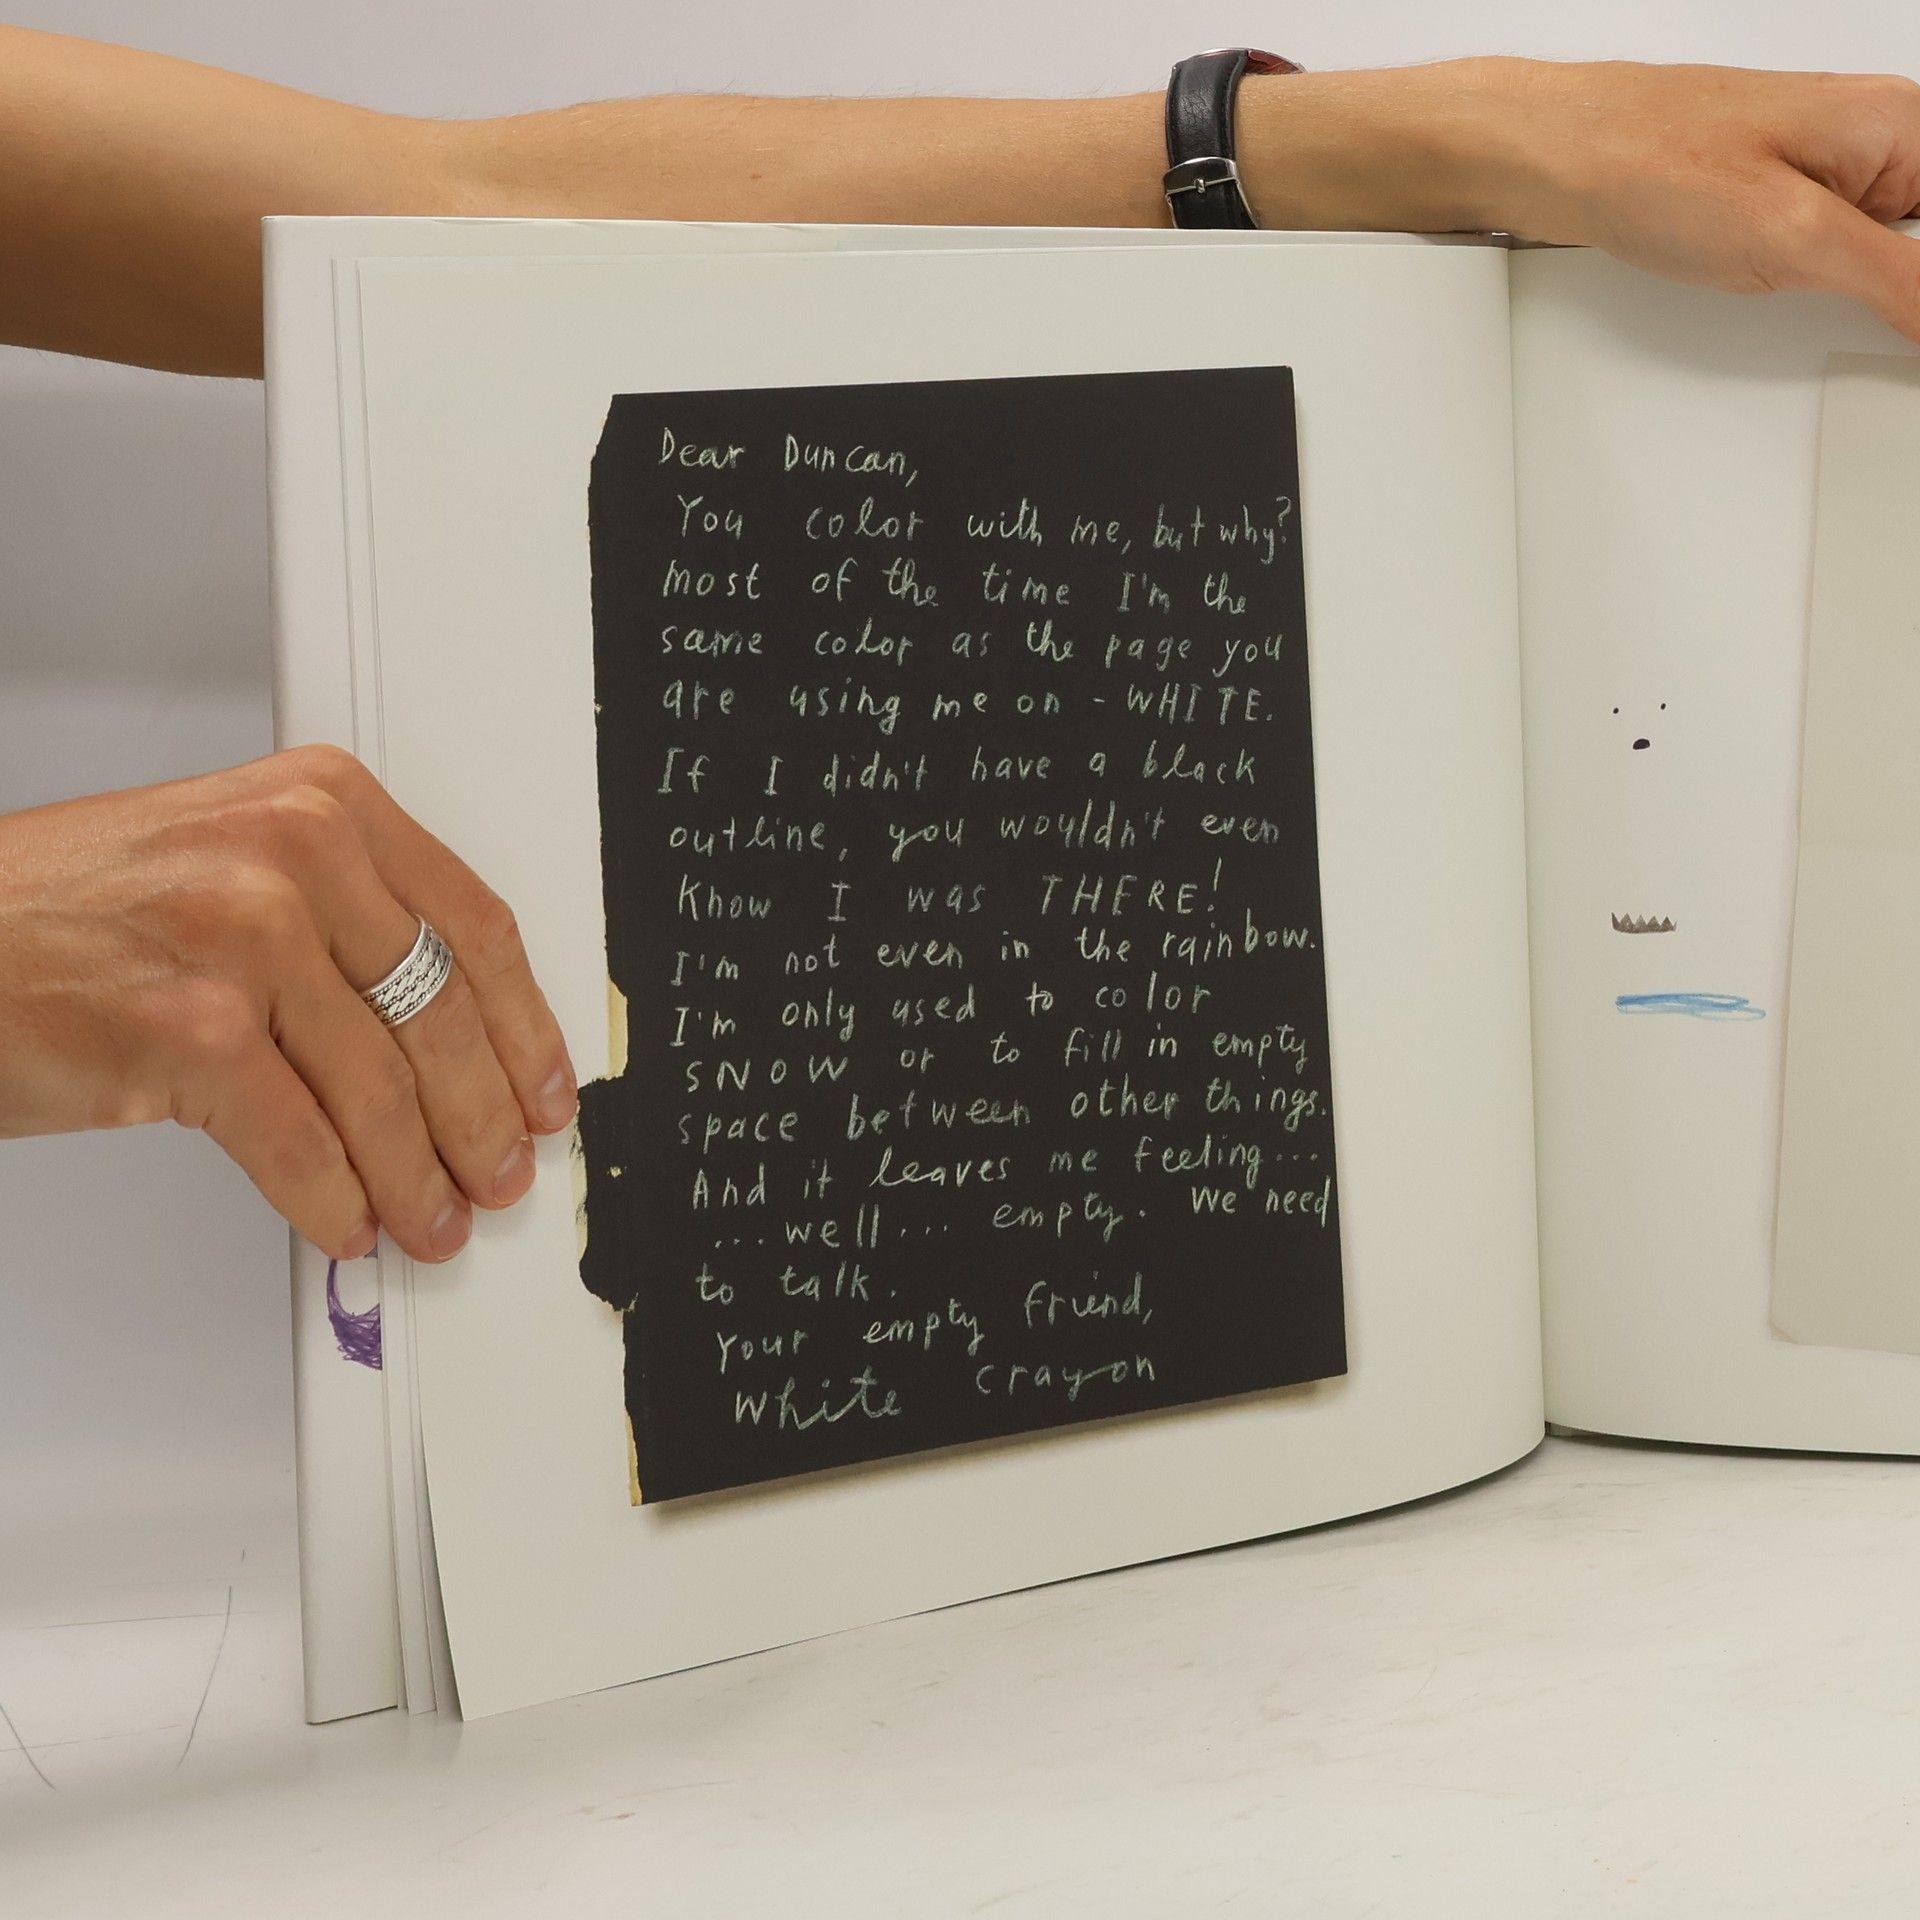 Dear Duncan,
You color with me, but why?
most of the time I'm the
same color as the page you
are using me on - WHITE.
If I didn't have a black
outline, you wouldn't even
know I was THERE!
I'm not even in the rainbow.
I'm only used to color
SNOW or to fill in empty
space between other things.
And it leaves me feeling...
...well... empty. We need
to talk.
Your empty friend,
White crayon